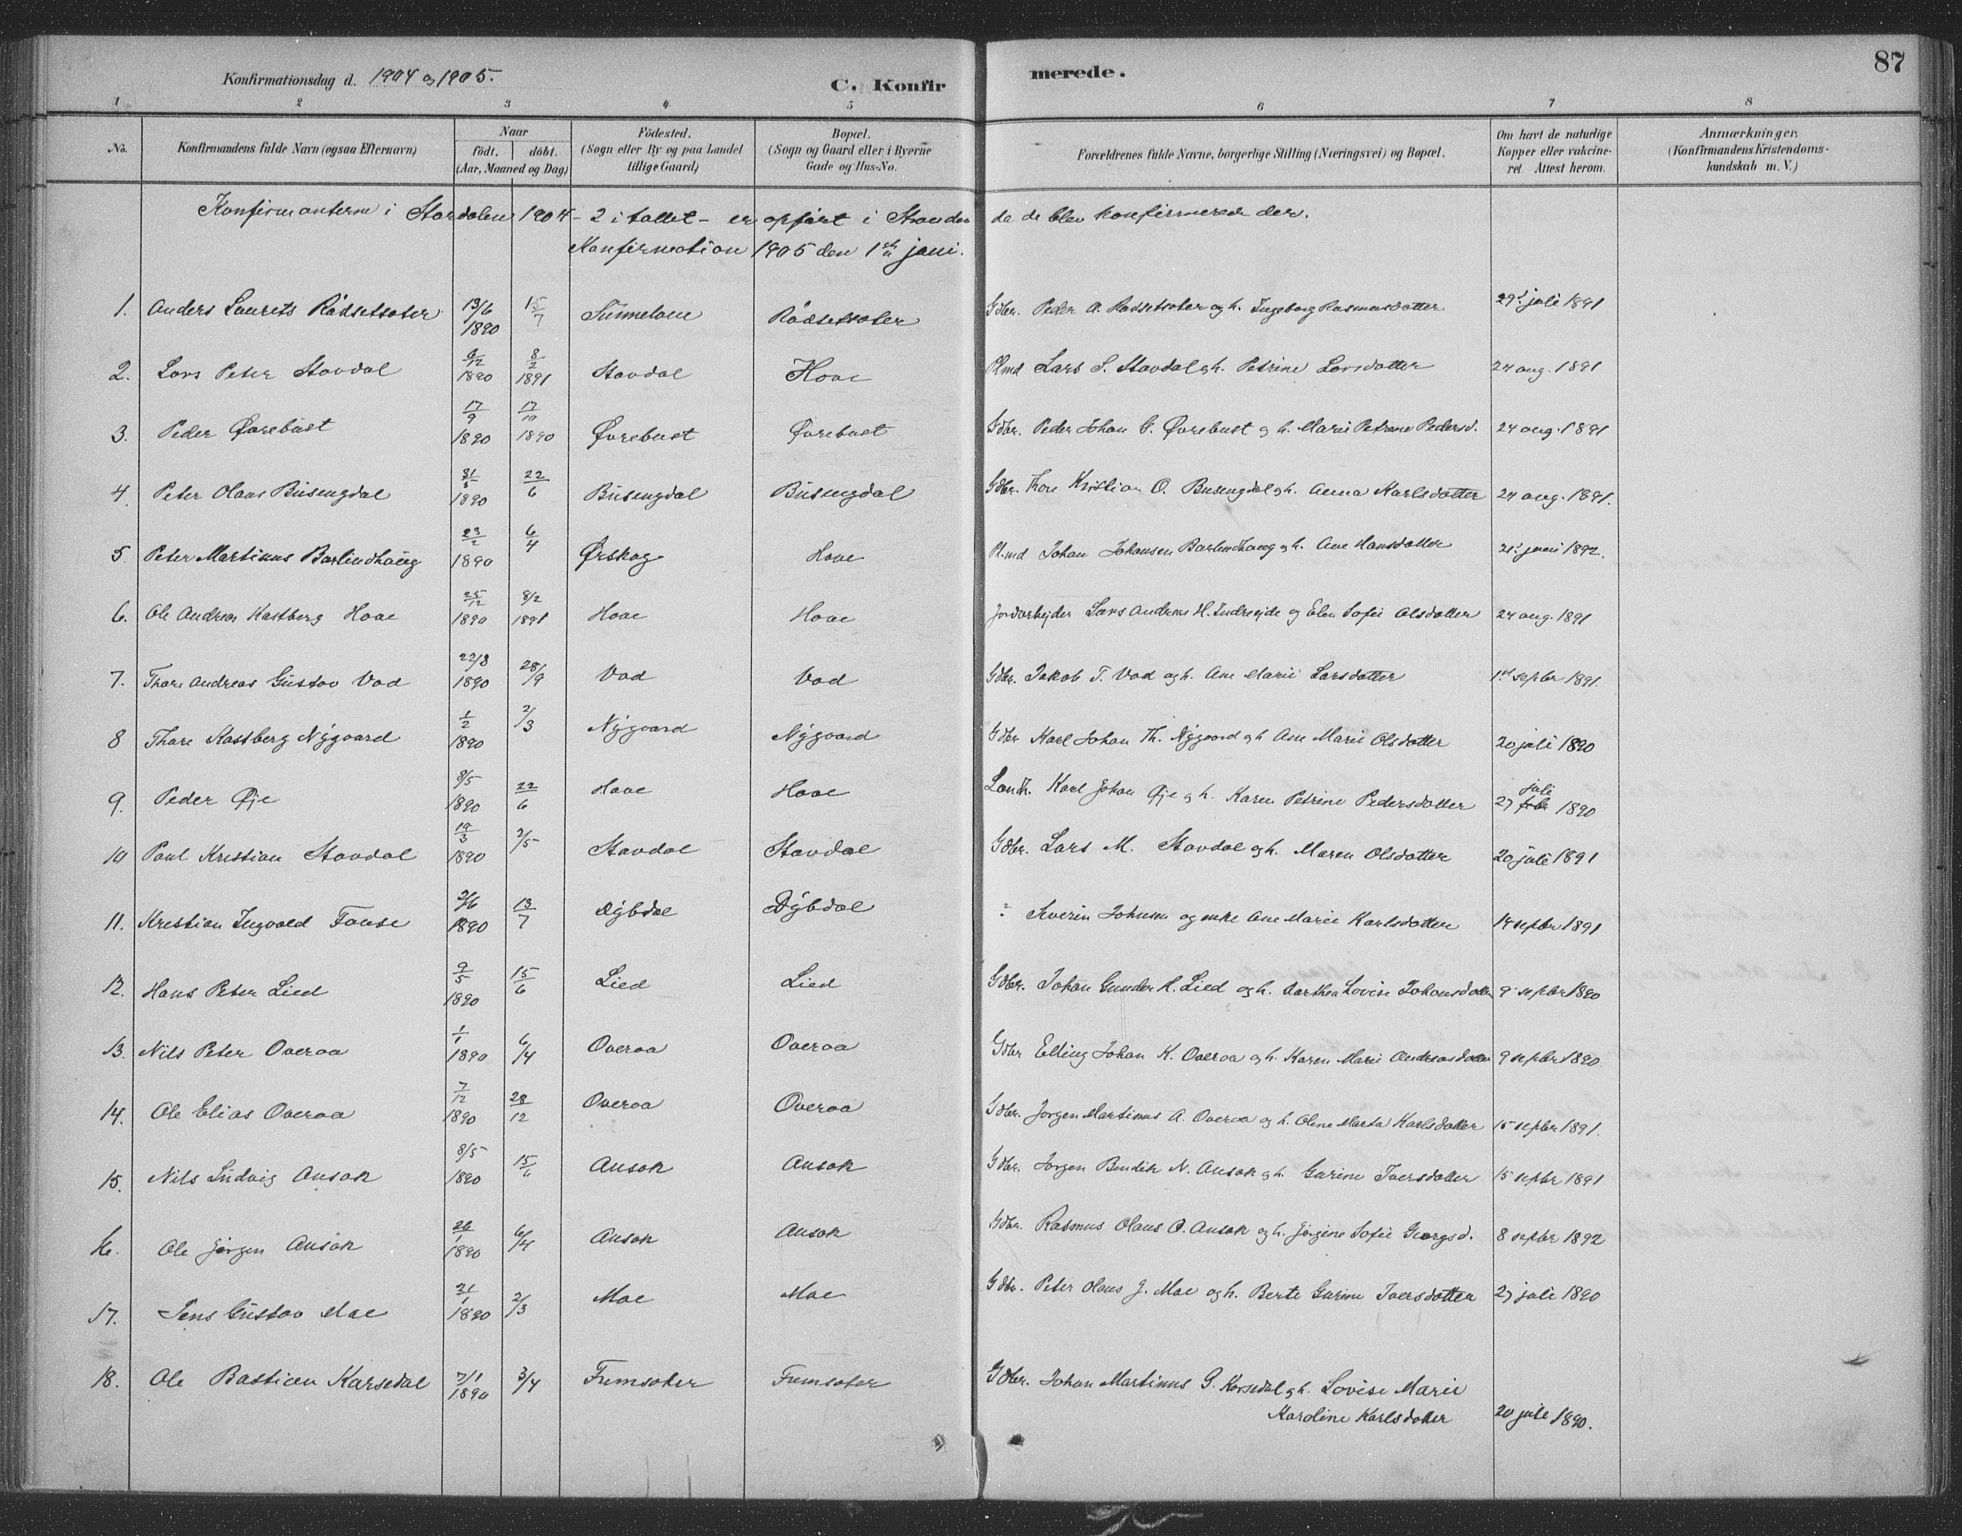 87
Konfirmationsdag d. 1904 og 1905.
C. Konfirmerede.
1 2 3 4 5 6 7 8
No. Konfirmandens fulde Navn (ogsaa Efternavn) Naar födt. döbt. (Aar, Maaned og Dag) Födested. (Sogn eller By og paa Landet tillige Gaard) Bopæl. (Sogn og Gaard eller i Byerne Gade og Hus-No. Forældrenes fulde Navne, borgerlige Stilling (Næringsvei) og Bopæl. Om havt de naturlige Kopper eller vakcineret. Attest herom. Anmærkninger. (Konfirmandens Kristendomskundskab m. V.)
Konfirmanterne i Stavdalen 1904 - 2 i tallet - er opført i Stranden da de blev konfirmerede der.
Konfirmation 1905 den 1ste juni.
1. Anders Laurets Rødsetsæter 13/6 1890 15/7 Rødsetsæter Gdbr. Peder A. Rødsetsæter og h. Ingeborg Rasmusdatter 29de juli 1891
2. Lars Peter Stavdal 9/12 1890 8/2 1891 Stavdal Hove Plmd Lars S. Stavdal og h. Petrine Larsdatter 24 aug. 1891
3. Peder Øvrebust 17/9 1890 17/10 1890 Øvrebust Øvrebust Gdbr. Peder Johan C. Øvrebust og h. Marie Petrine Pedersd. 24 aug. 1891
4. Peter Olaus Busengdal 31/5 1890 22/6 Busengdal Busengdal Gdbr. Thore Kristian O. Busengdal og h. Anna Karlsdatter 24 aug. 1891.
5. Peter Martinus Barlindhaug 23/2 1890 6/4 Ørskog Hove Plmd Johan Johansen Barlindhaug og h. Ane Hansdatter 21de juni 1892.
6. Ole Andreas Kastberg Hove 25/12 1890 8/2 1891 Hove Hove Jordarbejder Lars Andreas H. Indreejde og Elen Sofie Olsdatter 24 aug. 1891
7. Thore Andreas Gustav Vad 22/8 1890 28/9 Vad Vad Gdbr. Jakob T. Vad og h. Ane Marie Larsdatter 1ste septbr 1891.
8 Thore Kastberg Nygaard 1/2 1890 2/3 Nygaard Nygaard Gdbr. Karl Johan Th. Nygaard og h. Ane Marie Olsdatter 20 juli 1890
9. Peder Øje 8/5 1890 22/6 Hove Hove Landh. Karl Johan Øje og h. Karen Petrine Pedersdatter 27 juli 1890
10 Paul Kristian Stavdal 19/3 1890 2/5 Stavdal Stavdal Gdbr. Lars M. Stavdal og h. Maren Olsdatter 20 juli 1891
11. Kristian Ingvald Fause 2/6 1890 13/7 Dybdal Dybdal ? Severin Johnsen og enke Ane Marie Karlsdatter 14 septbr 1891
12. Hans Peter Lied 9/5 1890 15/6 Lied Lied Gdbr. Johan Gunder H. Lied og h. Aarthea Lovise Johansdatter 9 septbr 1890
13. Nils Peter Overaa 1/1 1890 6/4 Overaa Overaa Gdbr Elling Johan K. Overaa og h. Karen Marie Andreasdatter 9 septbr 1890
14. Ole Elias Overaa 7/12 1890 28/12 Overaa Overaa Gdbr. Jørgen Martinus A. Overaa og h. Oline Marta Karlsdatter 15 septbr 1891.
15. Nils Ludvig Ansok 8/5 1890 15/6 Ansok Ansok Gdbr. Jørgen Bendik N. Ansok og h. Gurine Iversdatter 15 septbr 1891
16. Ole Jørgen Ansok 26/1 1890 6/4 Ansok Ansok Gdbr. Rasmus Olaus O. Ansok og h. Jørgine Sofie Georgsd. 8 septbr 1892
17. Jens Gustav Moe 21/1 1890 2/3 Moe Moe Gdbr. Peter Olaus J. Moe og h. Berte Gurine Iversdatter 27 juli 1890
18. Ole Bastian Karsedal 7/1 1890 3/4 Fremsæter Fremsæter Gdbr. Johan Martinus G. Karsedal og h. Lovise Marie
Karoline Karlsdatter 20 juli 1890.